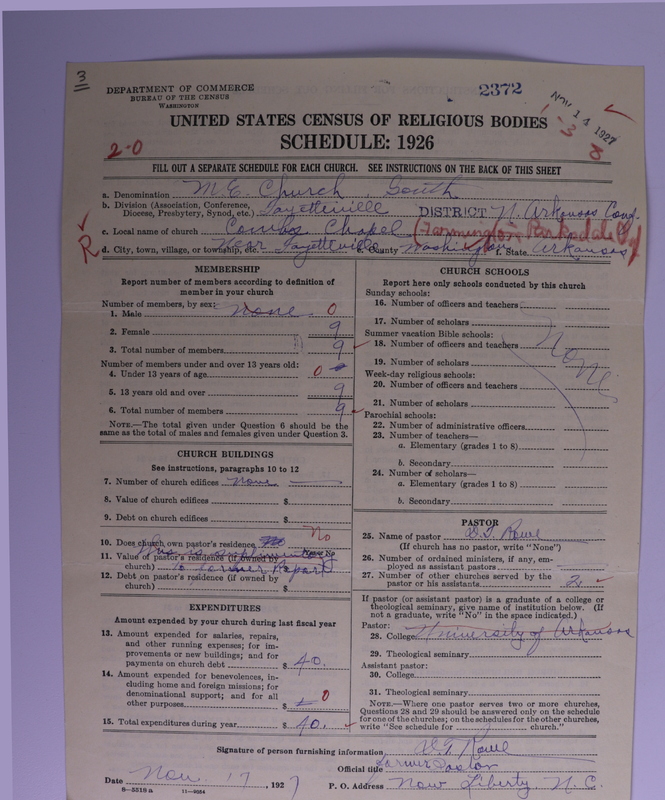 3
DEPARTMENT OF COMMERCE
BUREAU OF THE CENSUS
WASHINGTON
2372
NOV 14 1927
UNITED STATES CENSUS OF RELIGIOUS BODIES
SCHEDULE: 1926
2-0
3 8
FILL OUT A SEPARATE SCHEDULE FOR EACH CHURCH. SEE INSTRUCTIONS ON THE BACK OF THIS SHEET
a. Denomination M.E. Church, South
b. Division (Association, Conference, Diocese, Presbytery, Synod, etc.) Fayetteville DISTRICT N. Arkansas Conf.
c. Local name of church Combs Chapel (Farmington Parksdale
R
d. City, town, village, or township, etc. Near Fayetteville e. County Washington f. State Arkansas
MEMBERSHIP
Report number of members according to definition of
member in your church
Number of members, by sex:
1. Male none 0
2. Female 9
3. Total number of members 9
Number of members under and over 13 years old:
4. Under 13 years of age 0
5. 13 years old and over 9
6. Total number of members 9
NOTE.—The total given under Question 6 should be the
same as the total of males and females given under Question 3.
CHURCH BUILDINGS
See instructions, paragraphs 10 to 12
7. Number of church edifices none
8. Value of church edifices $
9. Debt on church edifices $
10. Does church own pastor's residence No
Yes or No
11. Value of pastor's residence (if owned by
church) This is supplementary to former Report
12. Debt on pastor's residence (if owned by
church) $
EXPENDITURES
Amount expended by your church during last fiscal year
13. Amount expended for salaries, repairs,
and other running expenses; for im-
provements or new buildings; and for
payments on church debt $ 40.
14. Amount expended for benevolences, in-
cluding home and foreign missions; for
denominational support; and for all
other purposes $ 0
15. Total expenditures during year $ 40.
CHURCH SCHOOLS
Report here only schools conducted by this church
Sunday schools:
16. Number of officers and teachers
17. Number of scholars
Summer vacation Bible schools:
18. Number of officers and teachers
19. Number of scholars
None
Week-day religious schools:
20. Number of officers and teachers
21. Number of scholars
Parochial schools:
22. Number of administrative officers
23. Number of teachers—
a. Elementary (grades 1 to 8)
b. Secondary
24. Number of scholars—
a. Elementary (grades 1 to 8)
b. Secondary
PASTOR
25. Name of pastor D.T. Rowe
(If church has no pastor, write "None")
26. Number of ordained ministers, if any, em-
ployed as assistant pastors
27. Number of other churches served by the
pastor or his assistants 2
If pastor (or assistant pastor) is a graduate of a college or
theological seminary, give name of institution below. (If
not a graduate, write "No" in the space indicated.)
Pastor:
28. College University of Arkansas
29. Theological seminary
Assistant pastor:
30. College
31. Theological seminary
NOTE.—Where one pastor serves two or more churches,
Questions 28 and 29 should be answered only on the schedule
for one of the churches; on the schedules for the other churches,
write "See schedule for church."
Signature of person furnishing information D.T. Rowe
Official title former Pastor
Date Nov. 17, 1927
P. O. Address New Liberty, N.C.
8—5318 a 11—9064